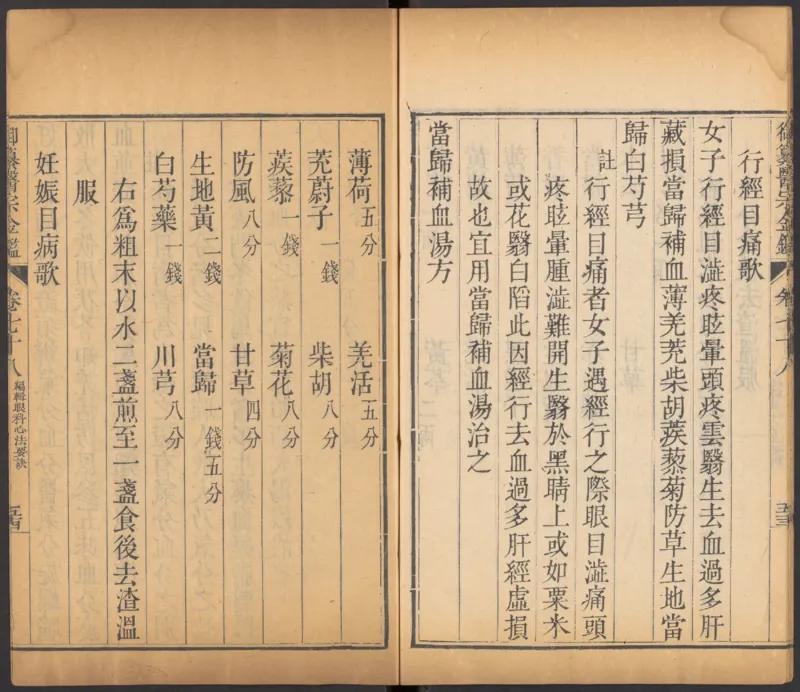 御纂醫宗金鑑 卷七十八 五十三
行經目痛歌
女子行經目澁疼眩暈頭疼雲翳生去血過多肝
藏損當歸補血薄羌茺柴胡蒺藜菊防草生地當
歸白芍芎
註行經目痛者女子遇經行之際眼目澁痛頭
疼眩暈腫澁難開生翳於黑睛上或如粟米
或花翳白陷此因經行去血過多肝經虛損
故也宜用當歸補血湯治之
當歸補血湯方
薄荷五分 羌活五分
茺蔚子一錢 柴胡八分
蒺藜一錢 菊花八分
防風八分 甘草四分
生地黃二錢 當歸一錢五分
白芍藥一錢 川芎八分
右爲粗末以水二盞煎至一盞食後去渣溫
服
妊娠目病歌
御纂醫宗金鑑 卷七十八 編輯眼科心法要訣 五十四